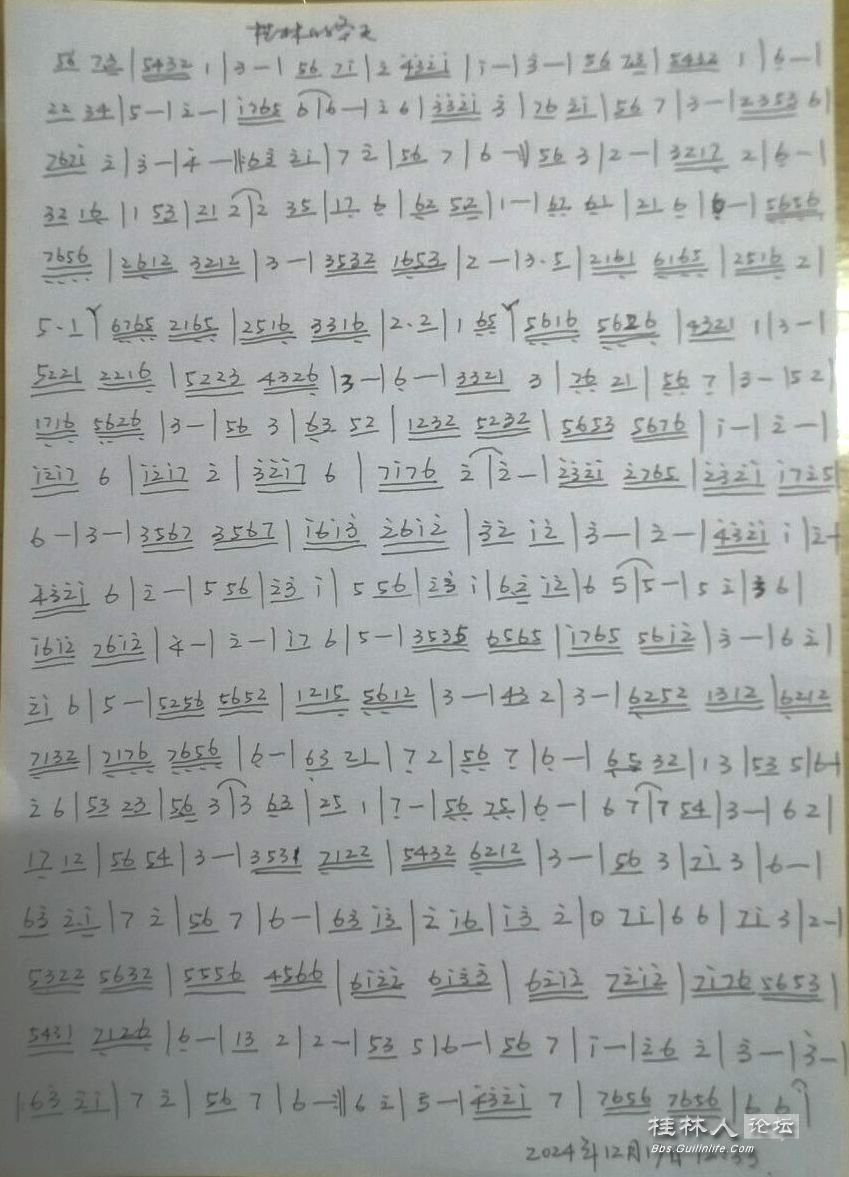 桂林的冬天
56 73 | 5432 1 | 3 — | 56 7i | 2 4321 | i — | 3 — | 56 73 | 5432 1 | 6 — |
22 34 | 5 — | 2 — | i765 6 | 6 — | 2 6 | 332i 3 | 76 2i | 56 7 | 3 — | 2353 6 |
762i 2 | 3 — | 4 — ‖: 63 2i | 7 2 | 56 7 | 6 — :‖ 56 3 | 2 — | 3217 2 | 6 — |
32 16 | 1 53 | 21 2 | 2 35 | 17 6 | 62 52 | 1 — | 67 61 | 21 6 | 6 — | 5656
7656 | 2612 3212 | 3 — | 3532 1653 | 2 — | 3 · 5 | 2161 6165 | 2516 2 |
5 · 1 6765 2165 | 2516 3316 | 2 · 2 | 1 65 5616 5626 | 4321 1 | 3 — |
5221 2216 | 5223 4326 | 3 — | 6 — | 3321 3 | 76 21 | 56 7 | 3 — | 5 2 |
1716 5626 | 3 — | 56 3 | 63 52 | 1232 5232 | 5653 5676 | i — | 2 — |
i2i7 6 | i2i7 2 | 32i7 6 | 7i76 2 | 2 — | 232i 2765 | 232i i725
6 — | 3 — | 3567 3567 | i6i3 26i2 | 32 i2 | 3 — | 2 — | 432i i | 2 —
432i 6 | 2 — | 5 56 | 23 i | 5 56 | 23 i | 62 i2 | 6 5 | 5 — | 5 2 | 3 6 |
i6i2 76i2 | 4 — | 2 — | i7 6 | 5 — | 3535 6565 | i765 56i2 | 3 — | 6 2 |
2i 6 | 5 — | 5256 5652 | 1215 5612 | 3 — | 43 2 | 3 — | 6252 1312 | 6212
7132 | 7176 7656 | 6 — | 63 21 | 7 2 | 56 7 | 6 — | 65 32 | 1 3 | 53 5 | 6 —
2 6 | 53 23 | 56 3 | 3 63 | 25 1 | 7 — | 56 75 | 6 — | 6 7 | 7 54 | 3 — | 6 2 |
17 12 | 56 54 | 3 — | 3531 7122 | 5432 6212 | 3 — | 56 3 | 7i 3 | 6 — |
63 2·i | 7 2 | 56 7 | 6 — | 63 i3 | 2 i6 | i3 2 | 0 7i | 6 6 | 7i 3 | 2 — |
5322 5632 | 5556 4566 | 6i22 6i33 | 62i2 72i2 | 7i76 5653 |
5431 7126 | 6 — | 13 2 | 2 — | 53 5 | 6 — | 56 7 | i — | 26 2 | 3 — | 3 — |
|: 63 2i | 7 2 | 56 7 | 6 — :‖ 6 2 | 5 — | 432i 7 | 7656 7656 | 6 6 |
2024年12月
桂林人论坛
Bbs.Guilinlife.com